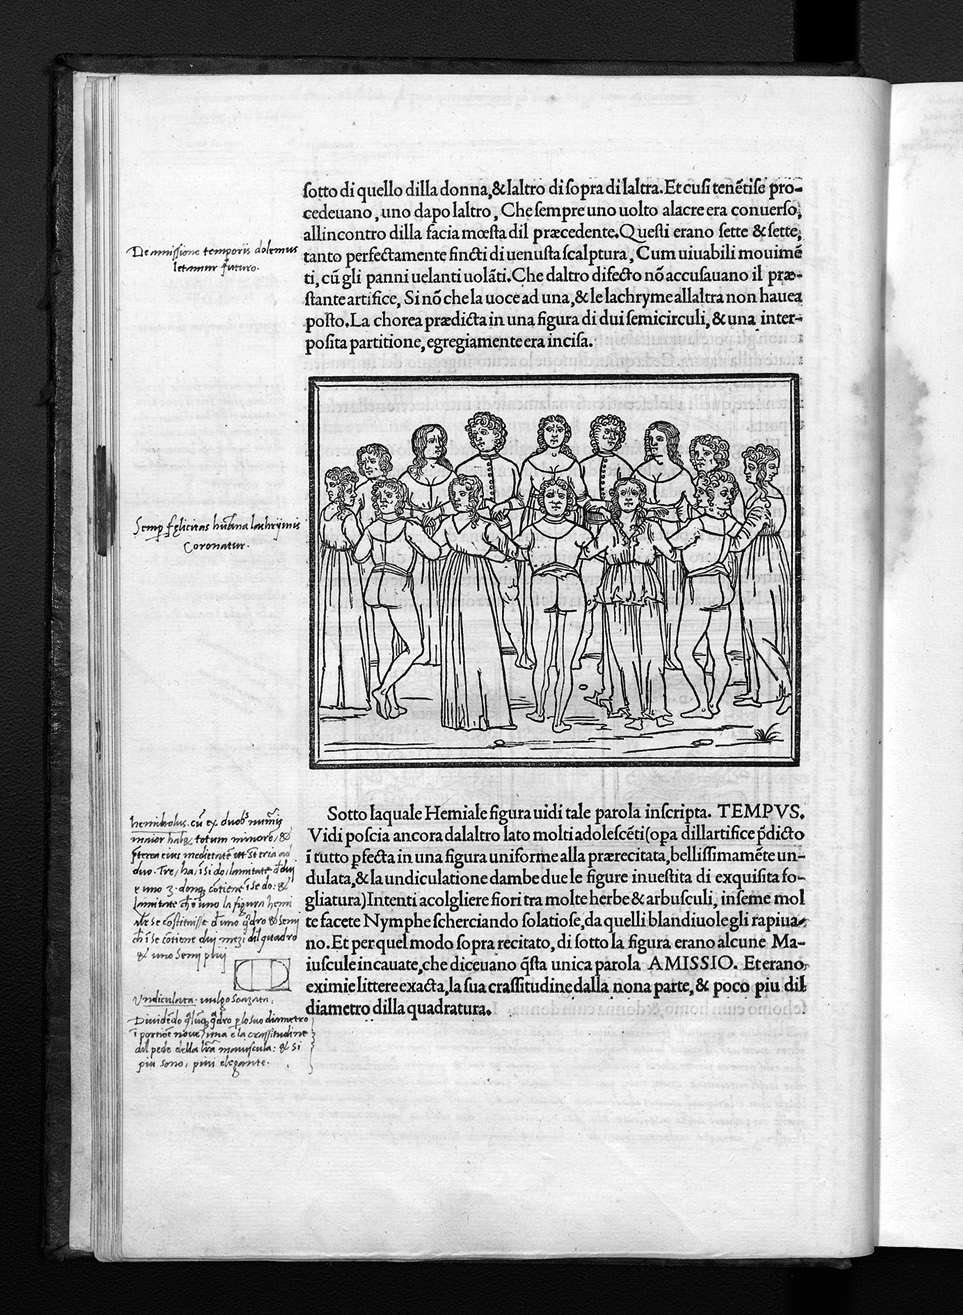 sotto di quello dilla donna,&laltro di sopra di laltra.Et cusi tenẽtise pro-
cedeuano, uno dapo laltro, Che sempre uno uolto alacre era conuerso,
allincontro dilla facia mœsta dil præcedente.Questi erano sette & sette,
tanto perfectamente fincti di uenusta scalptura, Cum uiuabili mouimẽ
ti, cũ gli panni uelanti uolãti.Che daltro difecto nõ accusauano il præ-
stante artifice, Si nõ che la uoce ad una,& le lachryme allaltra non hauea
posto.La chorea prædicta in una figura di dui semicirculi,& una inter-
posita partitione, egregiamente era incisa.
De amissione temporis dolemus
letamur futuro.
Semp felicitas hũana lachrymis
Coronatur.
Sotto laquale Hemiale figura uidi tale parola inscripta. TEMPVS.
Vidi poscia ancora dalaltro lato molti adolescẽti(opa dillartifice p̃dicto
ĩ tutto pfecta in una figura uniforme alla prærecitata,bellissimamẽte un-
dulata,& la undiculatione dambe due le figure inuestita di exquisita fo-
gliatura)Intenti acolgliere fiori tra molte herbe & arbusculi, inseme mol
te facete Nymphe scherciando solatiose,da quelli blandiuolegli rapiua-
no.Et per quel modo sopra recitato, di sotto la figura erano alcune Ma-
iuscule incauate,che diceuano q̃sta unica parola AMISSIO. Et erano
eximie littere exacta,la sua crassitudine dalla nona parte,& poco piu dil
diametro dilla quadratura.
hemibolus. cũ ex duobus numis
maior habet totum minore, &
ĩterea eius medietatẽ ut Si tria ad
duo. Tre, ha, ĩ Si do, lamitate d dui
e uno 3. donq cõtiene ĩ se do: &
lamitate ch e uno la figura hemi
se cõstituisse d uno q̃dro & semi
ch ĩ se cõtiene dui mezi dil quadro
& uno Semi piu
Vndiculata. uulgo Scazata.
Diuidẽdo q̃luq q̃dro p lo suo diametro
ĩ portiõe noue, ima e la crassitudine
del pede della lr̃a maiuscula: & Si
piu sono, piui elegante.